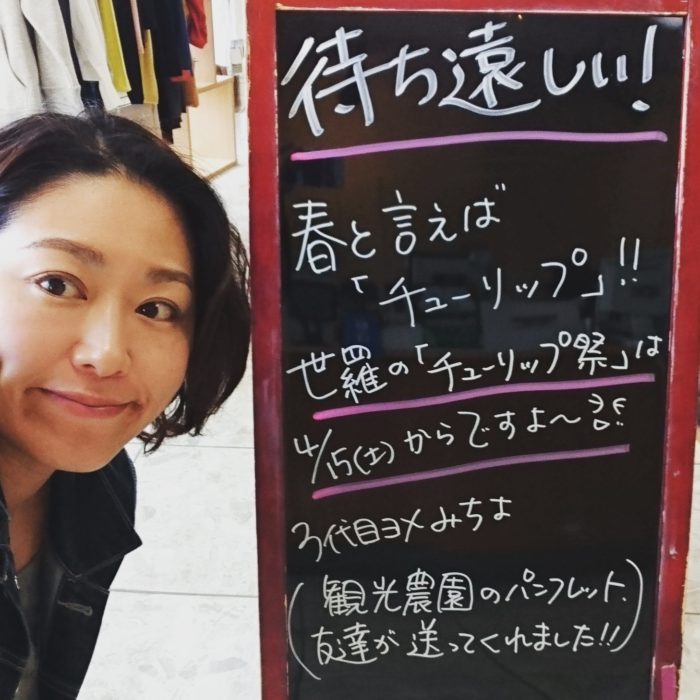 待ち遠しい!
春と言えば
「チューリップ」!!
世羅の「チューリップ祭」は
4/15(土)からですよ〜
3代目ヨメみちよ
(観光農園のパンフレット、
友達が送ってくれました!!)